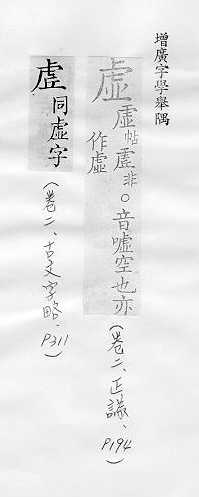 增廣字學舉隅
虛 虛帖虗非○音噓空也亦作虛
(卷二、正譌、P194)
虗 同虛字
(卷二、古文字略、P311)